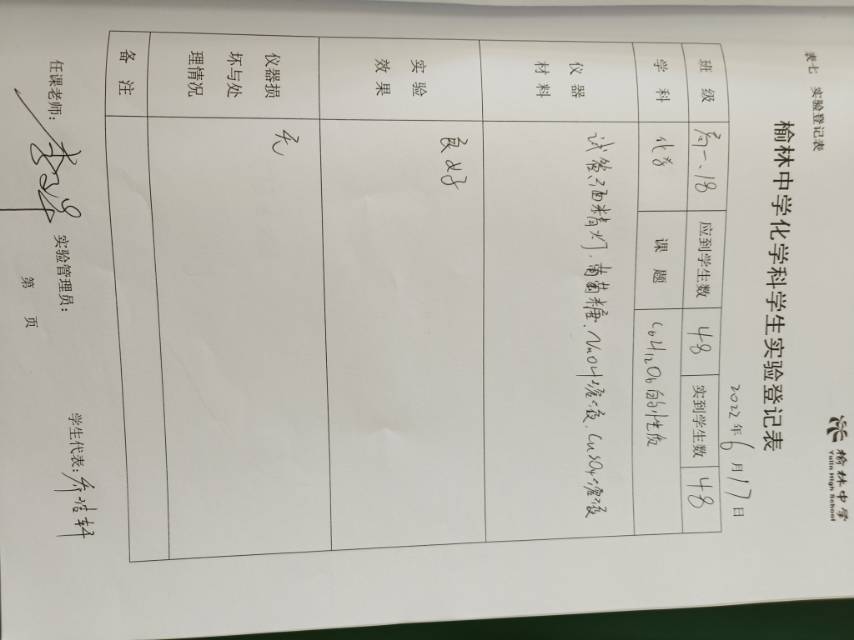 榆林中学
Yulin High School
表七 实验登记表
榆林中学化学科学生实验登记表
2022年6月17日
班级 高一、18 应到学生数 48 实到学生数 48
学科 化学 课题 C6H12O6的性质
仪器材料 试管、酒精灯、葡萄糖、NaOH溶液、CuSO4溶液
实验效果 良好
仪器损坏与处理情况 无
备注
任课老师: 实验管理员: 学生代表:
第 页